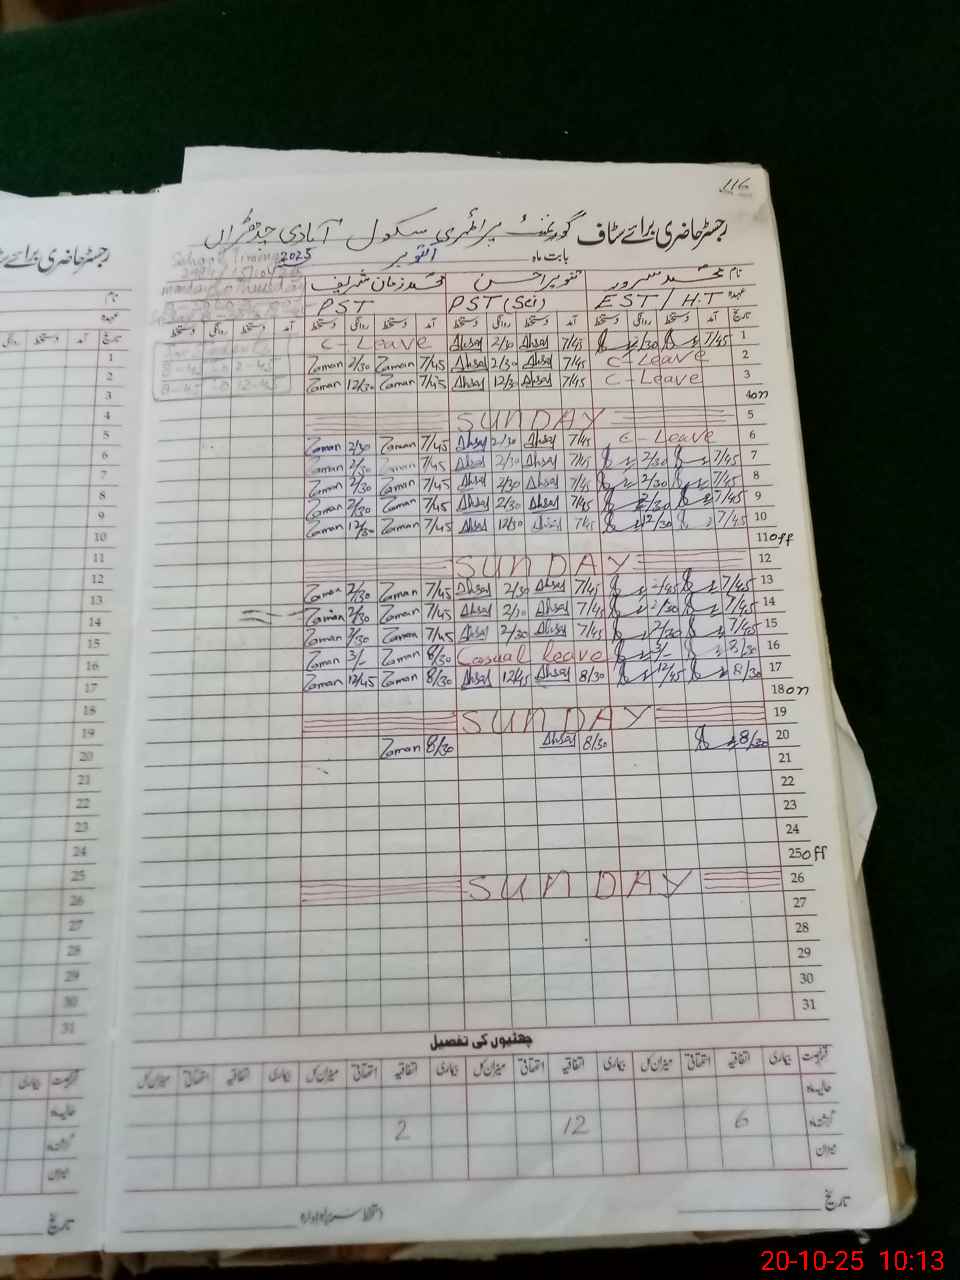 116
رجسٹر حاضری برائے سٹاف گورنمنٹ پرائمری سکول آبادی
بابت ماہ اکتوبر 2025
School Timing
نام محمد سرور تنویر احسن محمد زمان شریف
عہدہ EST / H.T PST (Sci) PST
تاریخ آمد دستخط روانگی دستخط آمد دستخط روانگی دستخط آمد دستخط روانگی دستخط آمد دستخط روانگی دستخط
C-Leave Ahsan 2/30 Ahsan 7/45 2/30 7/45 1
Zaman 2/30 Zaman 7/45 Ahsan 2/30 Ahsan 7/45 C-Leave 2
Zaman 12/30 Zaman 7/45 Ahsan 12/30 Ahsan 7/45 C-Leave 3
4on
SUNDAY 5
Zaman 2/30 Zaman 7/45 Ahsan 2/30 Ahsan 7/45 C-Leave 6
Zaman 2/30 Zaman 7/45 Ahsan 2/30 Ahsan 7/45 2/30 7/45 7
Zaman 2/30 Zaman 7/45 Ahsan 2/30 Ahsan 7/45 2/30 7/45 8
Zaman 2/30 Zaman 7/45 Ahsan 2/30 Ahsan 7/45 2/30 7/45 9
Zaman 12/30 Zaman 7/45 Ahsan 12/30 Ahsan 7/45 12/30 7/45 10
11off
SUNDAY 12
Zaman 2/30 Zaman 7/45 Ahsan 2/30 Ahsan 7/45 2/45 7/45 13
Zaman 2/30 Zaman 7/45 Ahsan 2/30 Ahsan 7/45 2/30 7/45 14
Zaman 2/30 Zaman 7/45 Ahsan 2/30 Ahsan 7/45 2/30 7/45 15
Zaman 3/- Zaman 8/30 Casual leave 3/- 8/30 16
Zaman 12/45 Zaman 8/30 Ahsan 12/45 Ahsan 8/30 12/45 8/30 17
18on
SUNDAY 19
Zaman 8/30 Ahsan 8/30 8/30 20
21
22
23
24
25off
SUNDAY 26
27
28
29
30
31
چھٹیوں کی تفصیل
بیماری اتفاقیہ استحقاقی میزان کل بیماری اتفاقیہ استحقاقی میزان کل بیماری اتفاقیہ استحقاقی میزان کل بیماری اتفاقیہ استحقاقی میزان کل
حالیہ ماہ
گزشتہ ماہ 6 12 2
میزان
تاریخ
دستخط سربراہ ادارہ
رجسٹر حاضری برائے
نام
عہدہ
تاریخ
1
2
3
4
5
6
7
8
9
10
11
12
13
14
15
16
17
18
19
20
21
22
23
24
25
26
27
28
29
30
31
بیماری
حالیہ ماہ
گزشتہ ماہ
میزان
تاریخ
20-10-25 10:13